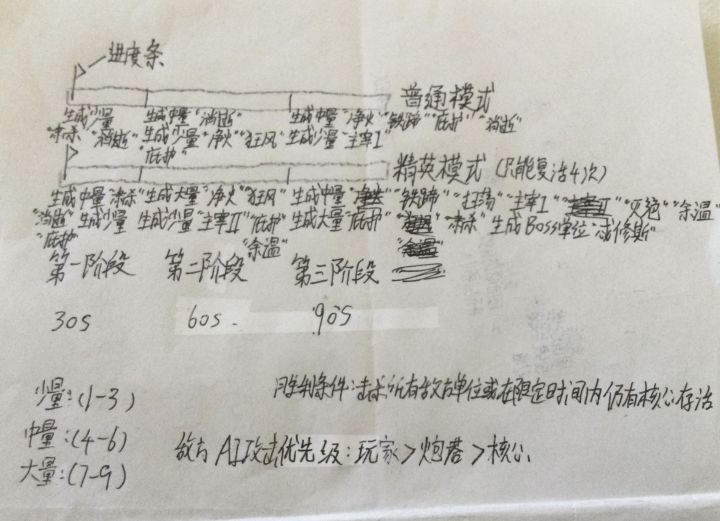 进度条
普通模式
生成少量 生成中量"消逝" 生成中量"净火""铁蹄""庇护""消逝"
"肃杀""消逝" 生成少量"净火""狂风" 生成少量"主宰I"
"庇护"
精英模式(只能复活4次)
生成中量"肃杀" 生成大量"净火""狂风" 生成中量 "铁蹄""主宰I" "灭绝""余温"
"消逝" 生成少量 生成少量"主宰II""庇护" 生成大量"庇护" "肃杀" 生成Boss单位
"庇护" "余温"
第一阶段 第二阶段 第三阶段
30s 60s 90s
少量:(1-3)
中量:(4-6)
大量:(7-9)
胜利条件:击杀所有敌方单位或在限定时间内仍有核心存活
敌方AI攻击优先级:玩家>炮塔>核心